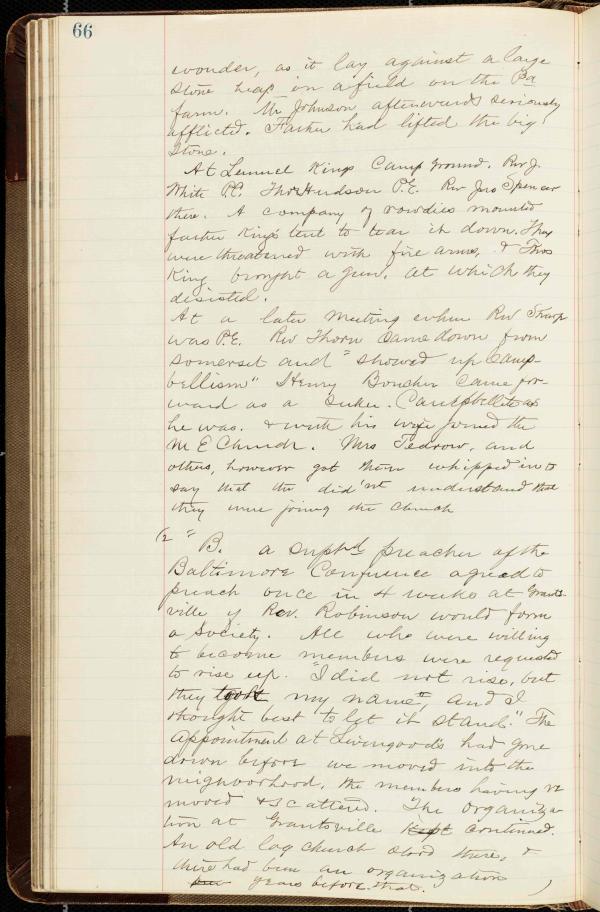 66
wonder, as it lay against a large
stone heap in a field on the Pa
farm. Mr Johnson afterwards seriously
afflicted. Father had lifted the big
stone.
At Lemuel Kings Camp ground. Rev J.
White P.C. Thos Hudson P.E. Rev Jno Spencer
there. A company of rowdies mounted
father King's tent to tear it down. They
were threatened with fire arms, & Thos
King brought a gun, at which they
desisted.
At a later meeting when Rev Sharp
was P.E. Rev Thorn came down from
Somerset and "showed up Camp-
bellism" Henry Boucher came for-
ward as a seeker. Campbellite as
he was. & with his wife joined the
M E Church. Mrs Tedrow, and
others, however got them whipped in to
say that the did'nt understand that
they were joining the church
(2 " B. a supprd preacher of the
Baltimore Conference agreed to
preach once in 4 weeks at Grants-
ville if Rev. Robinson would form
a Society. All who were willing
to become members were requested
to rise up. "I did not rise, but
they took my name", and I
thought best to let it stand." The
appointment at Livengood's had gone
down before we moved into the
neighborhood, the members having re
moved & scattered. The organiza-
tion at Grantsville kept continued.
An old log church stood there, &
there had been an organization
years before that. )